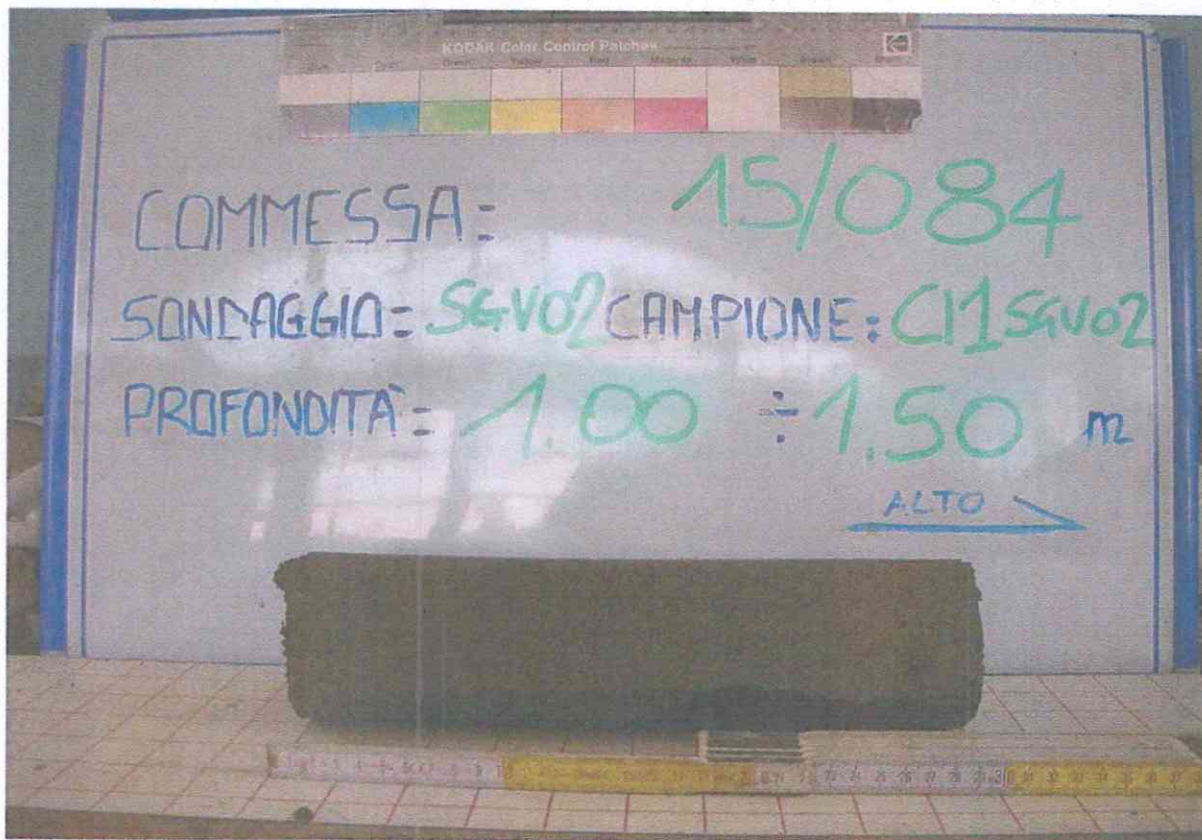 KODAK Color Control Patches
COMMESSA: 15/084
SONDAGGIO: SGV02 CAMPIONE: CI1SGV02
PROFONDITÀ: 1.00 ÷ 1.50 m
ALTO